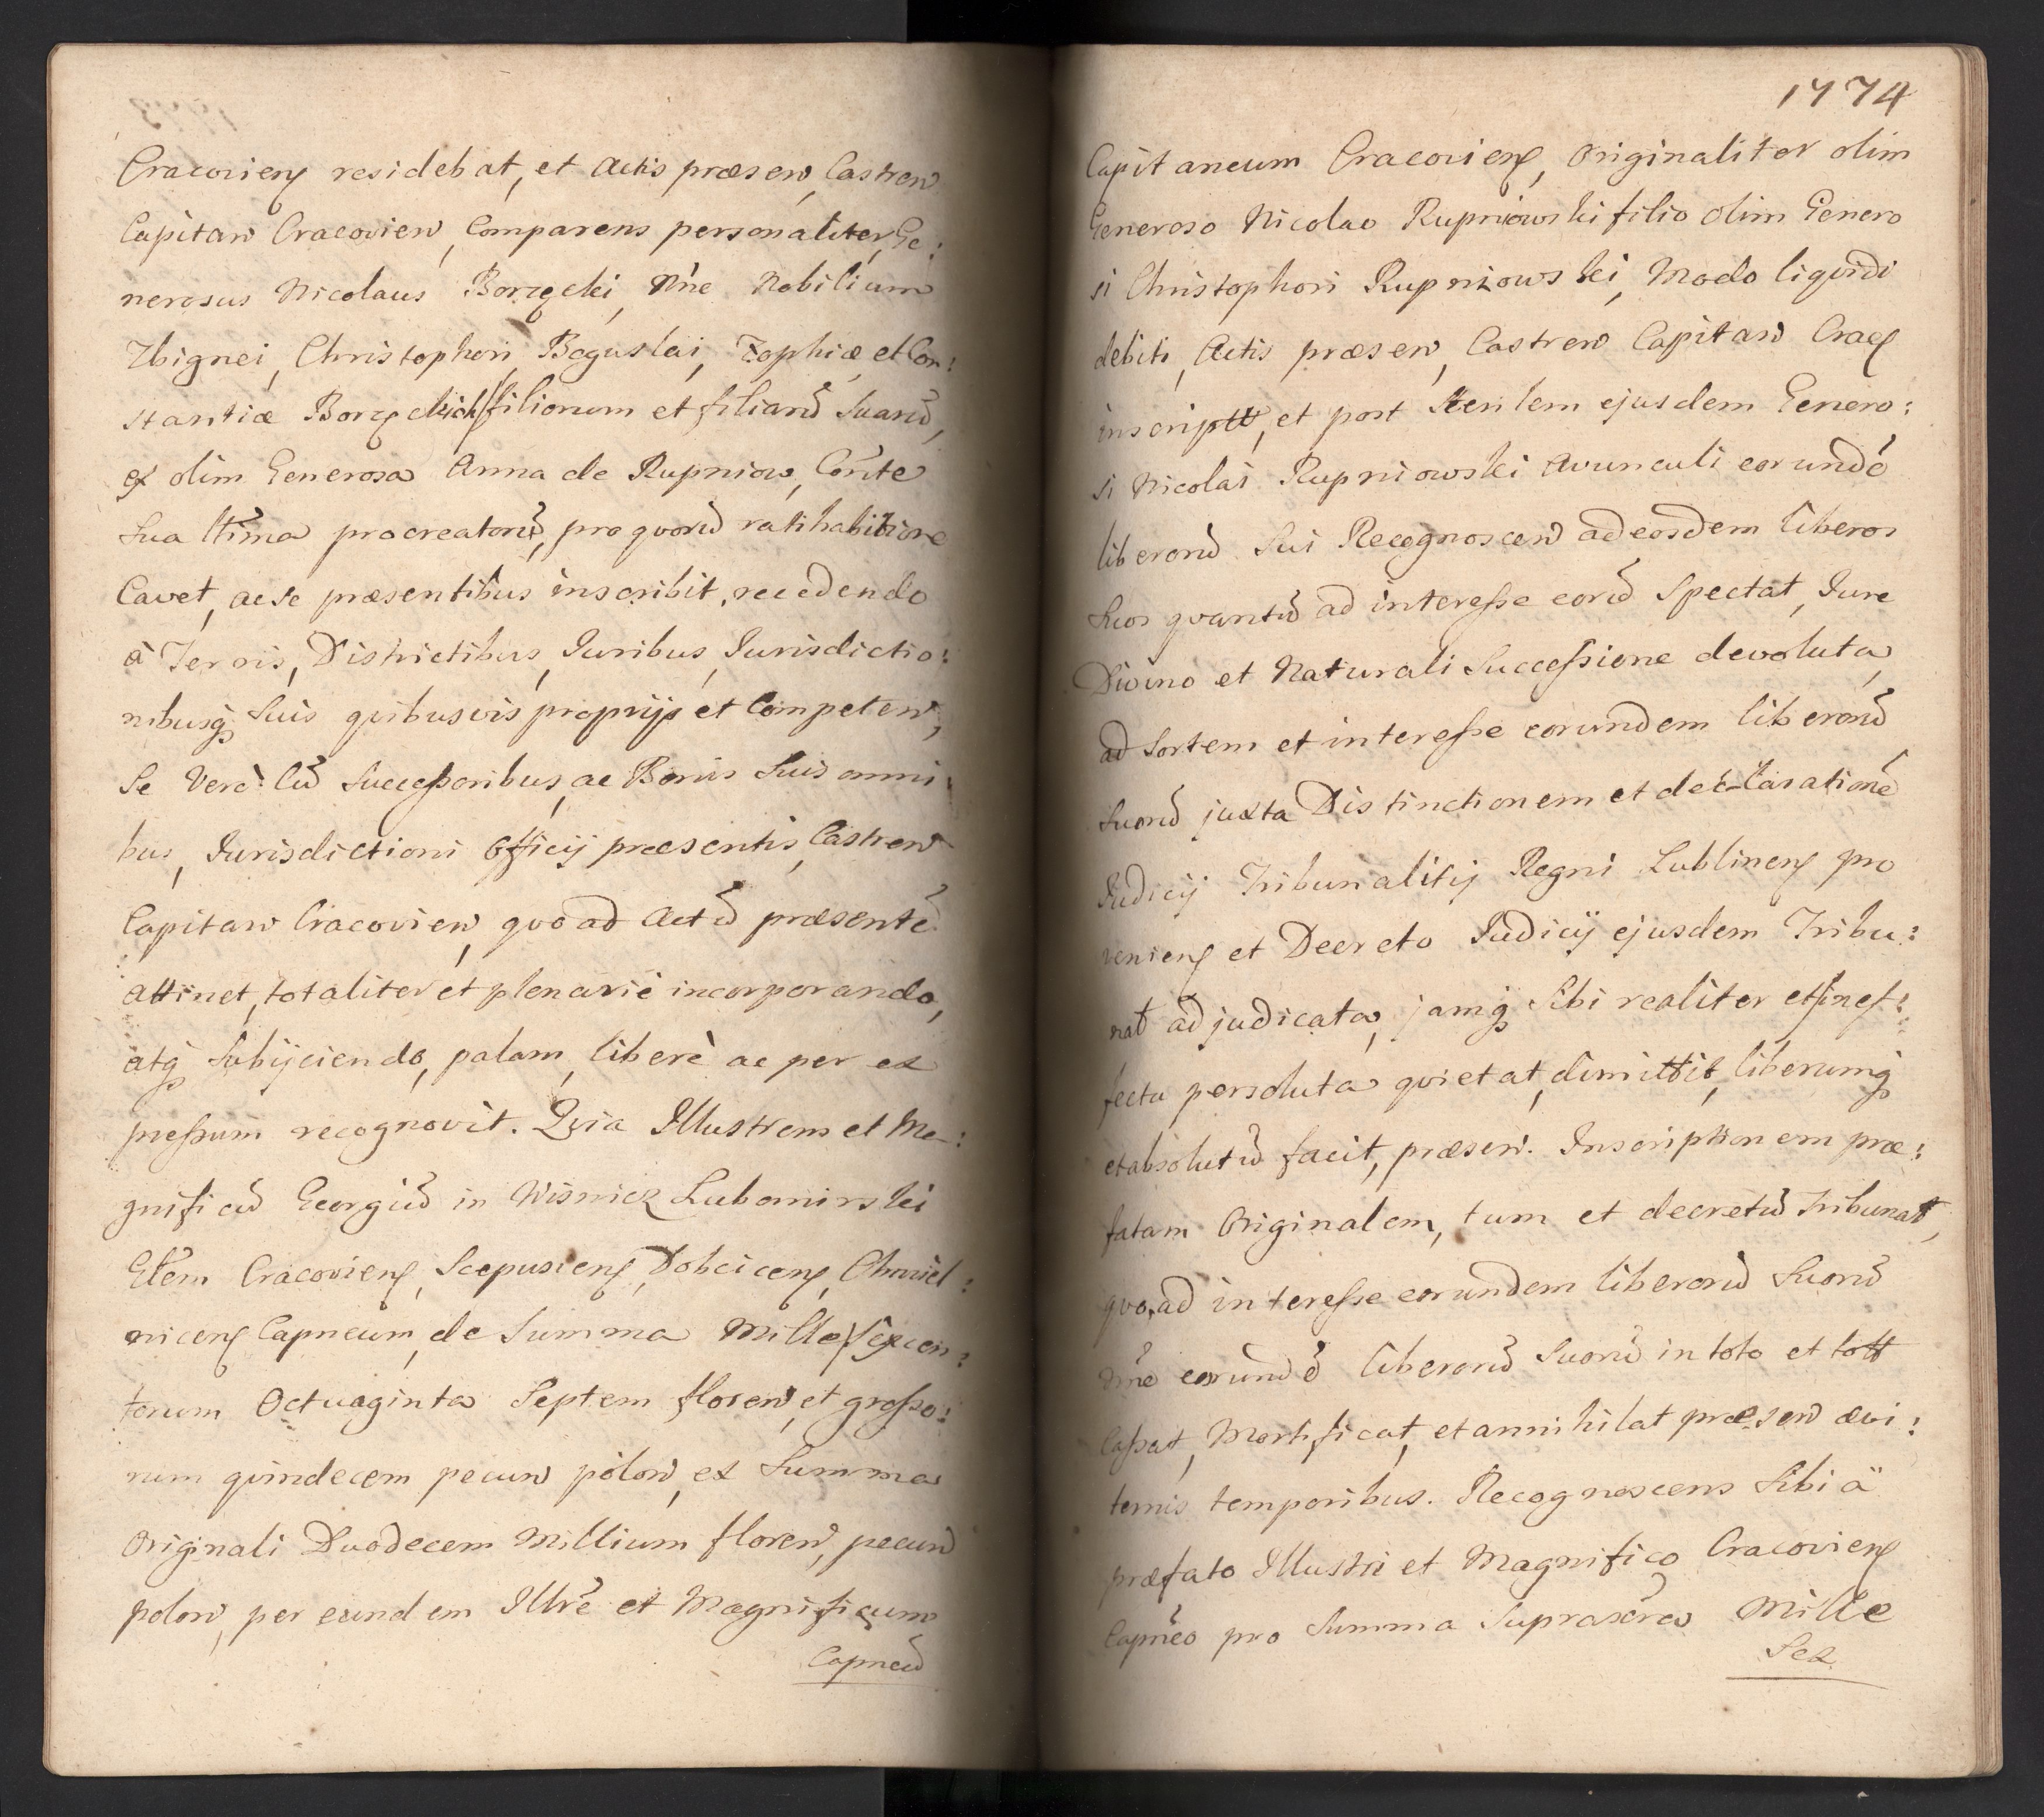 Cracovien residebat, et Actis præsen, Castren
Capitan Cracovien, Comparens personaliter, Ge:
nerosus Nicolaus Borzęcki, Nne Nobilium
Zbignei, Christophori,Boguslai, Zophiæ et Con:
stantiæ Borzęckich filiorum et filiarũ Suarũ,
ex olim Generosa Anna de Rupniow, Cõnte
Sua ltĩma procreatorũ, pro qvorũ ratihabitione
Cavet, ac se præsentibus inscribit, recedendo
à Terris, Districtibus, Juribus, Jurisdictio:
nibusq̃ Suis qvibusvis proprijs et Competen,
Se Verò Cũ Successoribus, ac Bonis Suis omni
bus, Jurisdictioni Officij præsentis, Castren
Capitan Cracovien, qvo ad Actũ præsentẽ
attinet, totaliter et plenariè incorporando,
atq̃ Subijciendo, palam, liberè ac per ex
pressum recognovit. Qvia Illustrem et Ma:
gnificũ Georgiũ in Wisnicz Lubomirski
Glem Cracovien, Scepusien, Dobcicen, Chmiel:
nicen Capneum, de Summa Mille Sexcen:
torum Octuaginta Septem floren, et grosso:
rum qvindecem pecun polon, ex Summa
Originali Duodecem Millium floren, pecun
polon, per eundem Illrẽ et Magnificum
Capneũ
1774
Capitaneum Cracovien, Originaliter olim
Generoso Nicolao Rupniowski filio olim Genero
si Christophori Rupniowski, Modo liqvidi
debiti, Actis præsen, Castren Capitan Crac
inscriptt, et post Sterilem ejusdem Genero:
si Nicolai Rupniowski Avunculi eorundẽ
liberorũ Sui Recognoscen ad eosdem liberos
Suos qvantũ ad interesse eorũ Spectat, Jure
Divino et Naturali Successione devoluta,
ad Sortem et interesse eorundem liberorũ
Suorũ juxta Distinctionem et declarationẽ
Judicij Tribunalitij Regni Lublinen pro
venien et Decreto Judicij ejusdem Tribu:
nal adjudicata, jamq̃ Sibi realiter et in ef:
fectu persoluta qvietat, dimittit, liberumq̃
et absolutũ facit, præsen. Inscriptionem præ:
fatam Originalem, tum et decretũ Tribunal,
qvo, ad interesse eorundem liberorũ Suorũ
nnẽ eorundẽ liberorũ Suorũ in toto et tott
Cassat, Mortificat, et annihilat præsen ævi:
ternis temporibus. Recognoscens Sibi à
præfato Illustri et Magnifico Cracovien
Capnẽo pro Summa Suprascra Mille
Sex